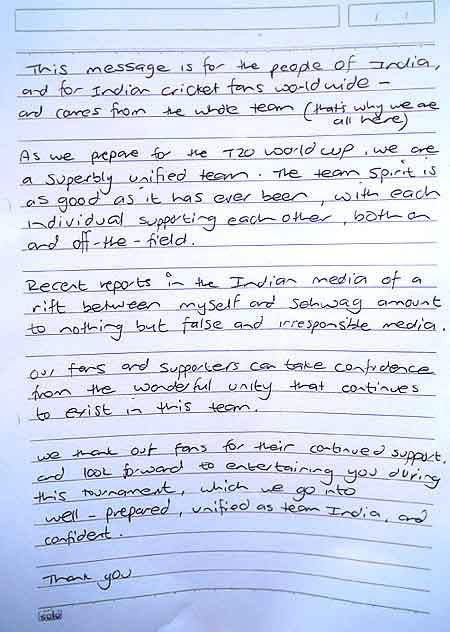 This message is for the people of India,
and for Indian cricket fans worldwide –
and comes from the whole team (that's why we are
all here)
As we prepare for the T20 world cup, we are
a superbly unified team. The team spirit is
as good as it has ever been, with each
individual supporting each other, both on
and off-the-field.
Recent reports in the Indian media of a
rift between myself and Sehwag amount
to nothing but false and irresponsible media.
Our fans and supporters can take confidence
from the wonderful unity that continues
to exist in this team.
We thank our fans for their continued support,
and look forward to entertaining you during
this tournament, which we go into
well-prepared, unified as team India, and
confident.
Thank you
solo